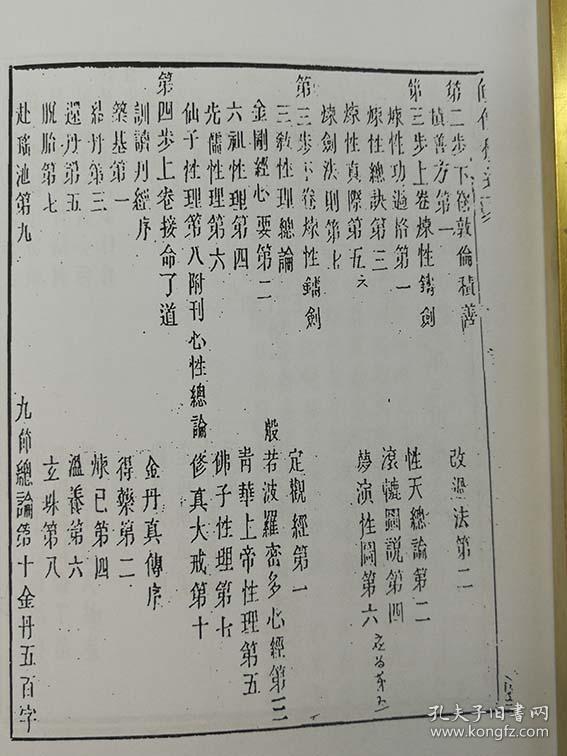 第二步下卷敦倫積善
善方第一 改過法第二
第三步上卷煉性鑄劍
煉性功過格第一 性天總論第二
煉性總訣第三 滾轆圖說第四
煉性真際第五 六 夢演性圖第六 应为第五
煉劍法則第七
第三步下卷煉性鑄劍
三教性理總論 定觀經第一
金剛經心要第二 般若波羅密多心經第三
六祖性理第四 青華上帝性理第五
先儒性理第六 佛子性理第七
仙子性理第八附刊心性總論 修真大戒第十
第四步上卷接命了道
訓讀丹經序 金丹真傳序
築基第一 得藥第二
結丹第三 煉己第四
還丹第五 溫養第六
脫胎第七 玄珠第八
赴瑤池第九 九節總論第十金丹五百字
孔夫子旧书网
www.kongfz.com